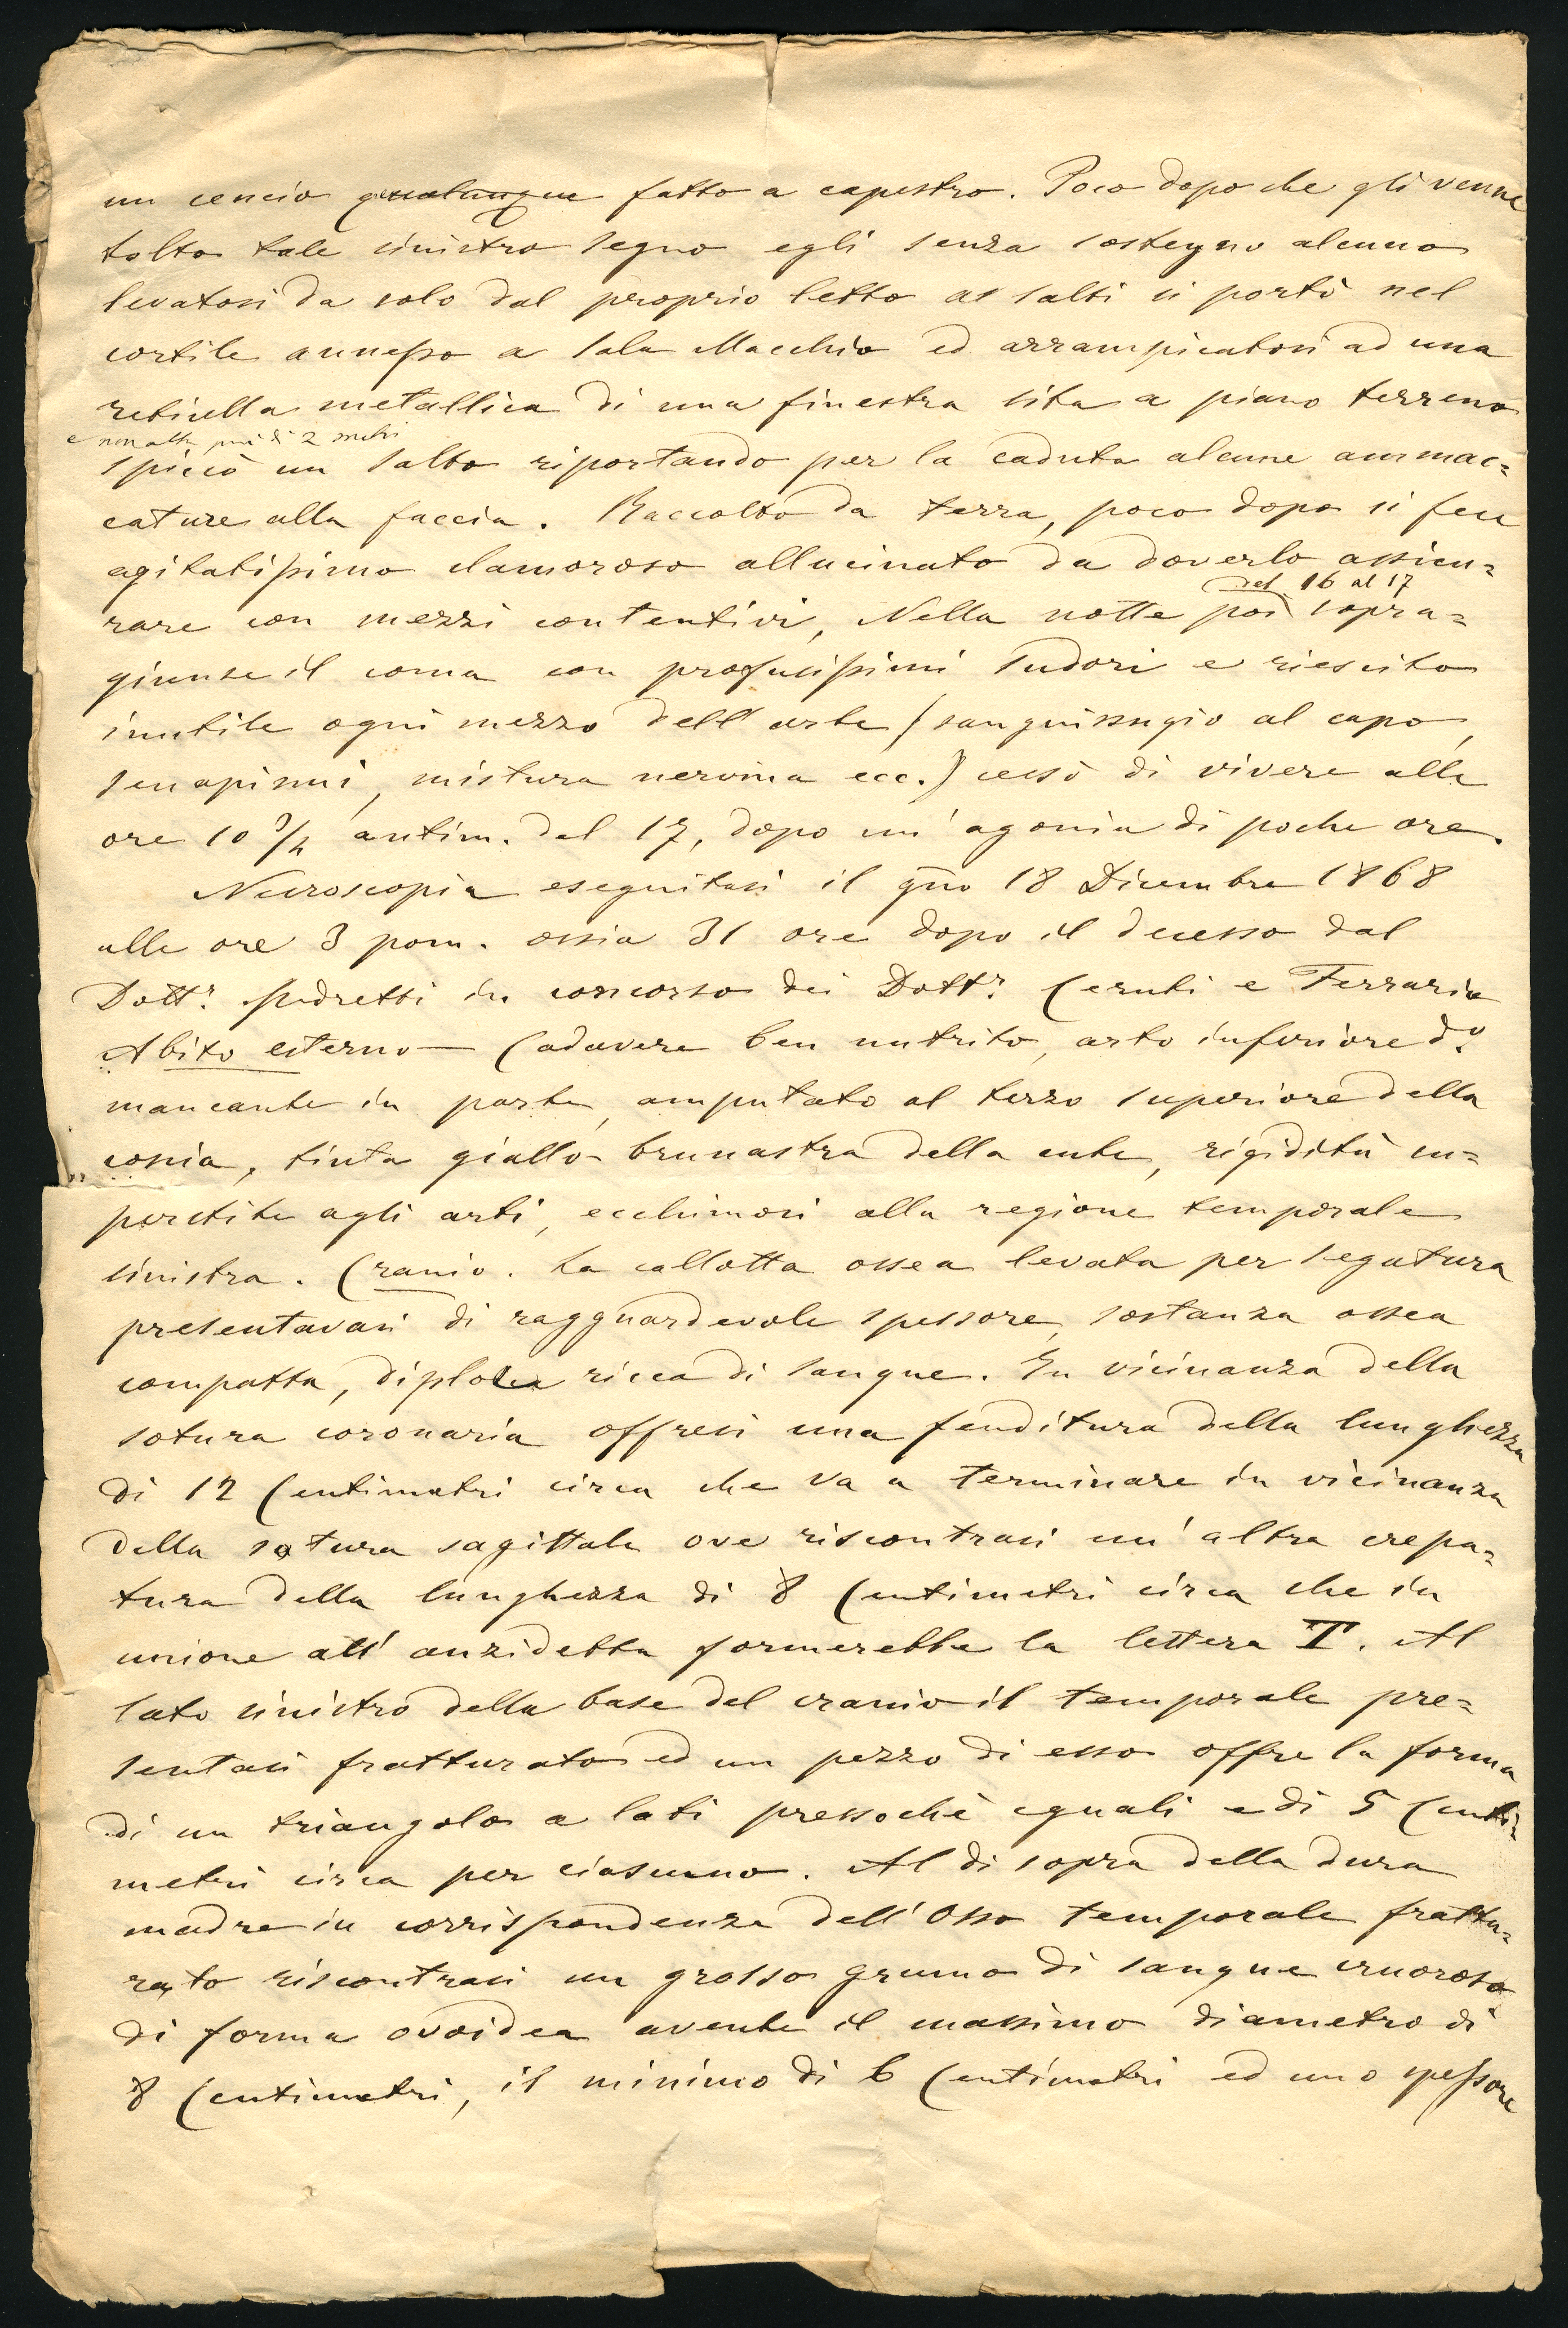 un cencio qualunque fatto a capestro. Poco dopo che gli venne
tolto tale sinistro segno egli senza sostegno alcuno
levatosi da solo dal proprio letto a salti si portò nel
cortile annesso a Sala Macchio ed arrampicatosi ad una
reticella metallica di una finestra sita a piano terreno
e non alta più di 2 metri
spiccò un salto riportando per la caduta alcune ammac=
cature alla faccia. Raccolto da terra, poco dopo si fece
agitatissimo clamoroso allucinato da doverlo assicu=
del 16 al 17
rare con mezzi contentivi, Nella notte poi sopra=
giunse il coma con profusissimi sudori e riescito
inutile ogni mezzo dell'arte (sanguissugio al capo,
senapismi, mistura nervina ecc.) cessò di vivere alle
ore 10 3/4 antim. del 17, dopo un'agonia di poche ore.
Necroscopia eseguitasi il gno 18 Dicembre 1868
alle ore 3 pom. ossia 31 ore dopo il decesso dal
Dottr. Pedretti in concorso dei Dottr. Ceruti e Ferrario
Abito esterno — Cadavere ben nutrito, arto inferiore do.
mancante in parte, amputato al terzo superiore della
coscia, tinta giallo-brunastra della cute, rigidità im=
partita agli arti, ecchimosi alla regione temporale
sinistra. Cranio. La callotta ossea levata per segatura
presentavasi di ragguardevole spessore, sostanza ossea
compatta, diploe ricca di sangue. In vicinanza della
sotura coronaria offresi una fenditura della lunghezza
di 12 Centimetri circa che va a terminare in vicinanza
della sotura sagittale ove riscontrasi un'altra crepa=
tura della lunghezza di 8 Centimetri circa che in
unione all'anzidetta formerebbe la lettera T. Al
lato sinistro della base del cranio il temporale pre=
sentasi fratturato ed un pezzo di esso offre la forma
di un triangolo a lati pressochè eguali e di 5 Centi=
metri circa per ciascuno. Al di sopra della dura
madre in corrispondenza dell'Osso temporale frattu=
rato riscontrasi un grosso grumo di sangue cruoroso
di forma ovoidea avente il massimo diametro di
8 Centimetri, il minimo di 6 Centimetri ed uno spessore